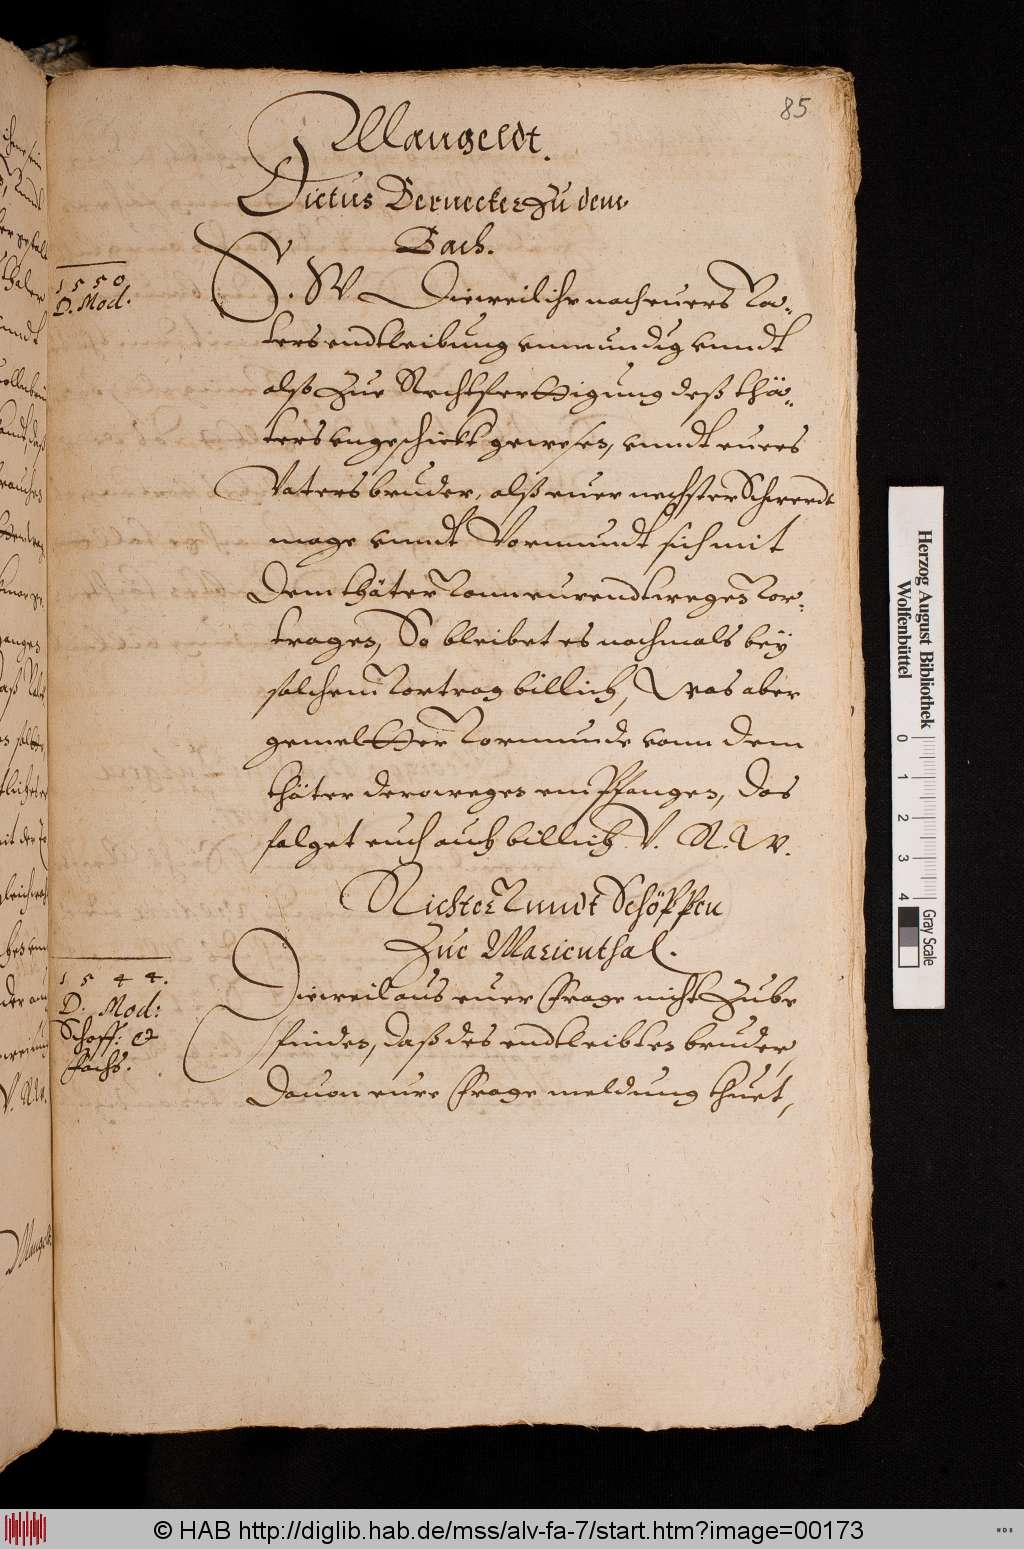 85
Mangeldt.
Dictus Bernecker zu dem
Bach.
1550
D. Mod.
S. W Dieweil ihr nach euers Va-
ters endtleibung unmundig unndt
alß zue Rechtferttigung deß thä-
ters ungeschickt gewesen, unndt euers
Vaters bruder, alß euer nechster Schwerdt
mage unndt Vormundt sich mit
dem thäter vonn eurendtwegen vor-
tragen, So bleibet es nachmals bey
solchem vortrag billich, was aber
gemeltter vormunde vonn dem
thäter derowegen empfangen, das
folget euch auch billich V. R. W.
Richter vnndt Schöppen
Zue Marienthal.
1544.
D. Mod:
Schoff: et
Fachs.
Dieweil aus euer frage nicht zube
finden, daß des endtleibten bruder,
dauon eure frage meldung thuet,
Herzog August Bibliothek
Wolfenbüttel
0 1 2 3 4
Gray Scale
© HAB http://diglib.hab.de/mss/alv-fa-7/start.htm?image=00173